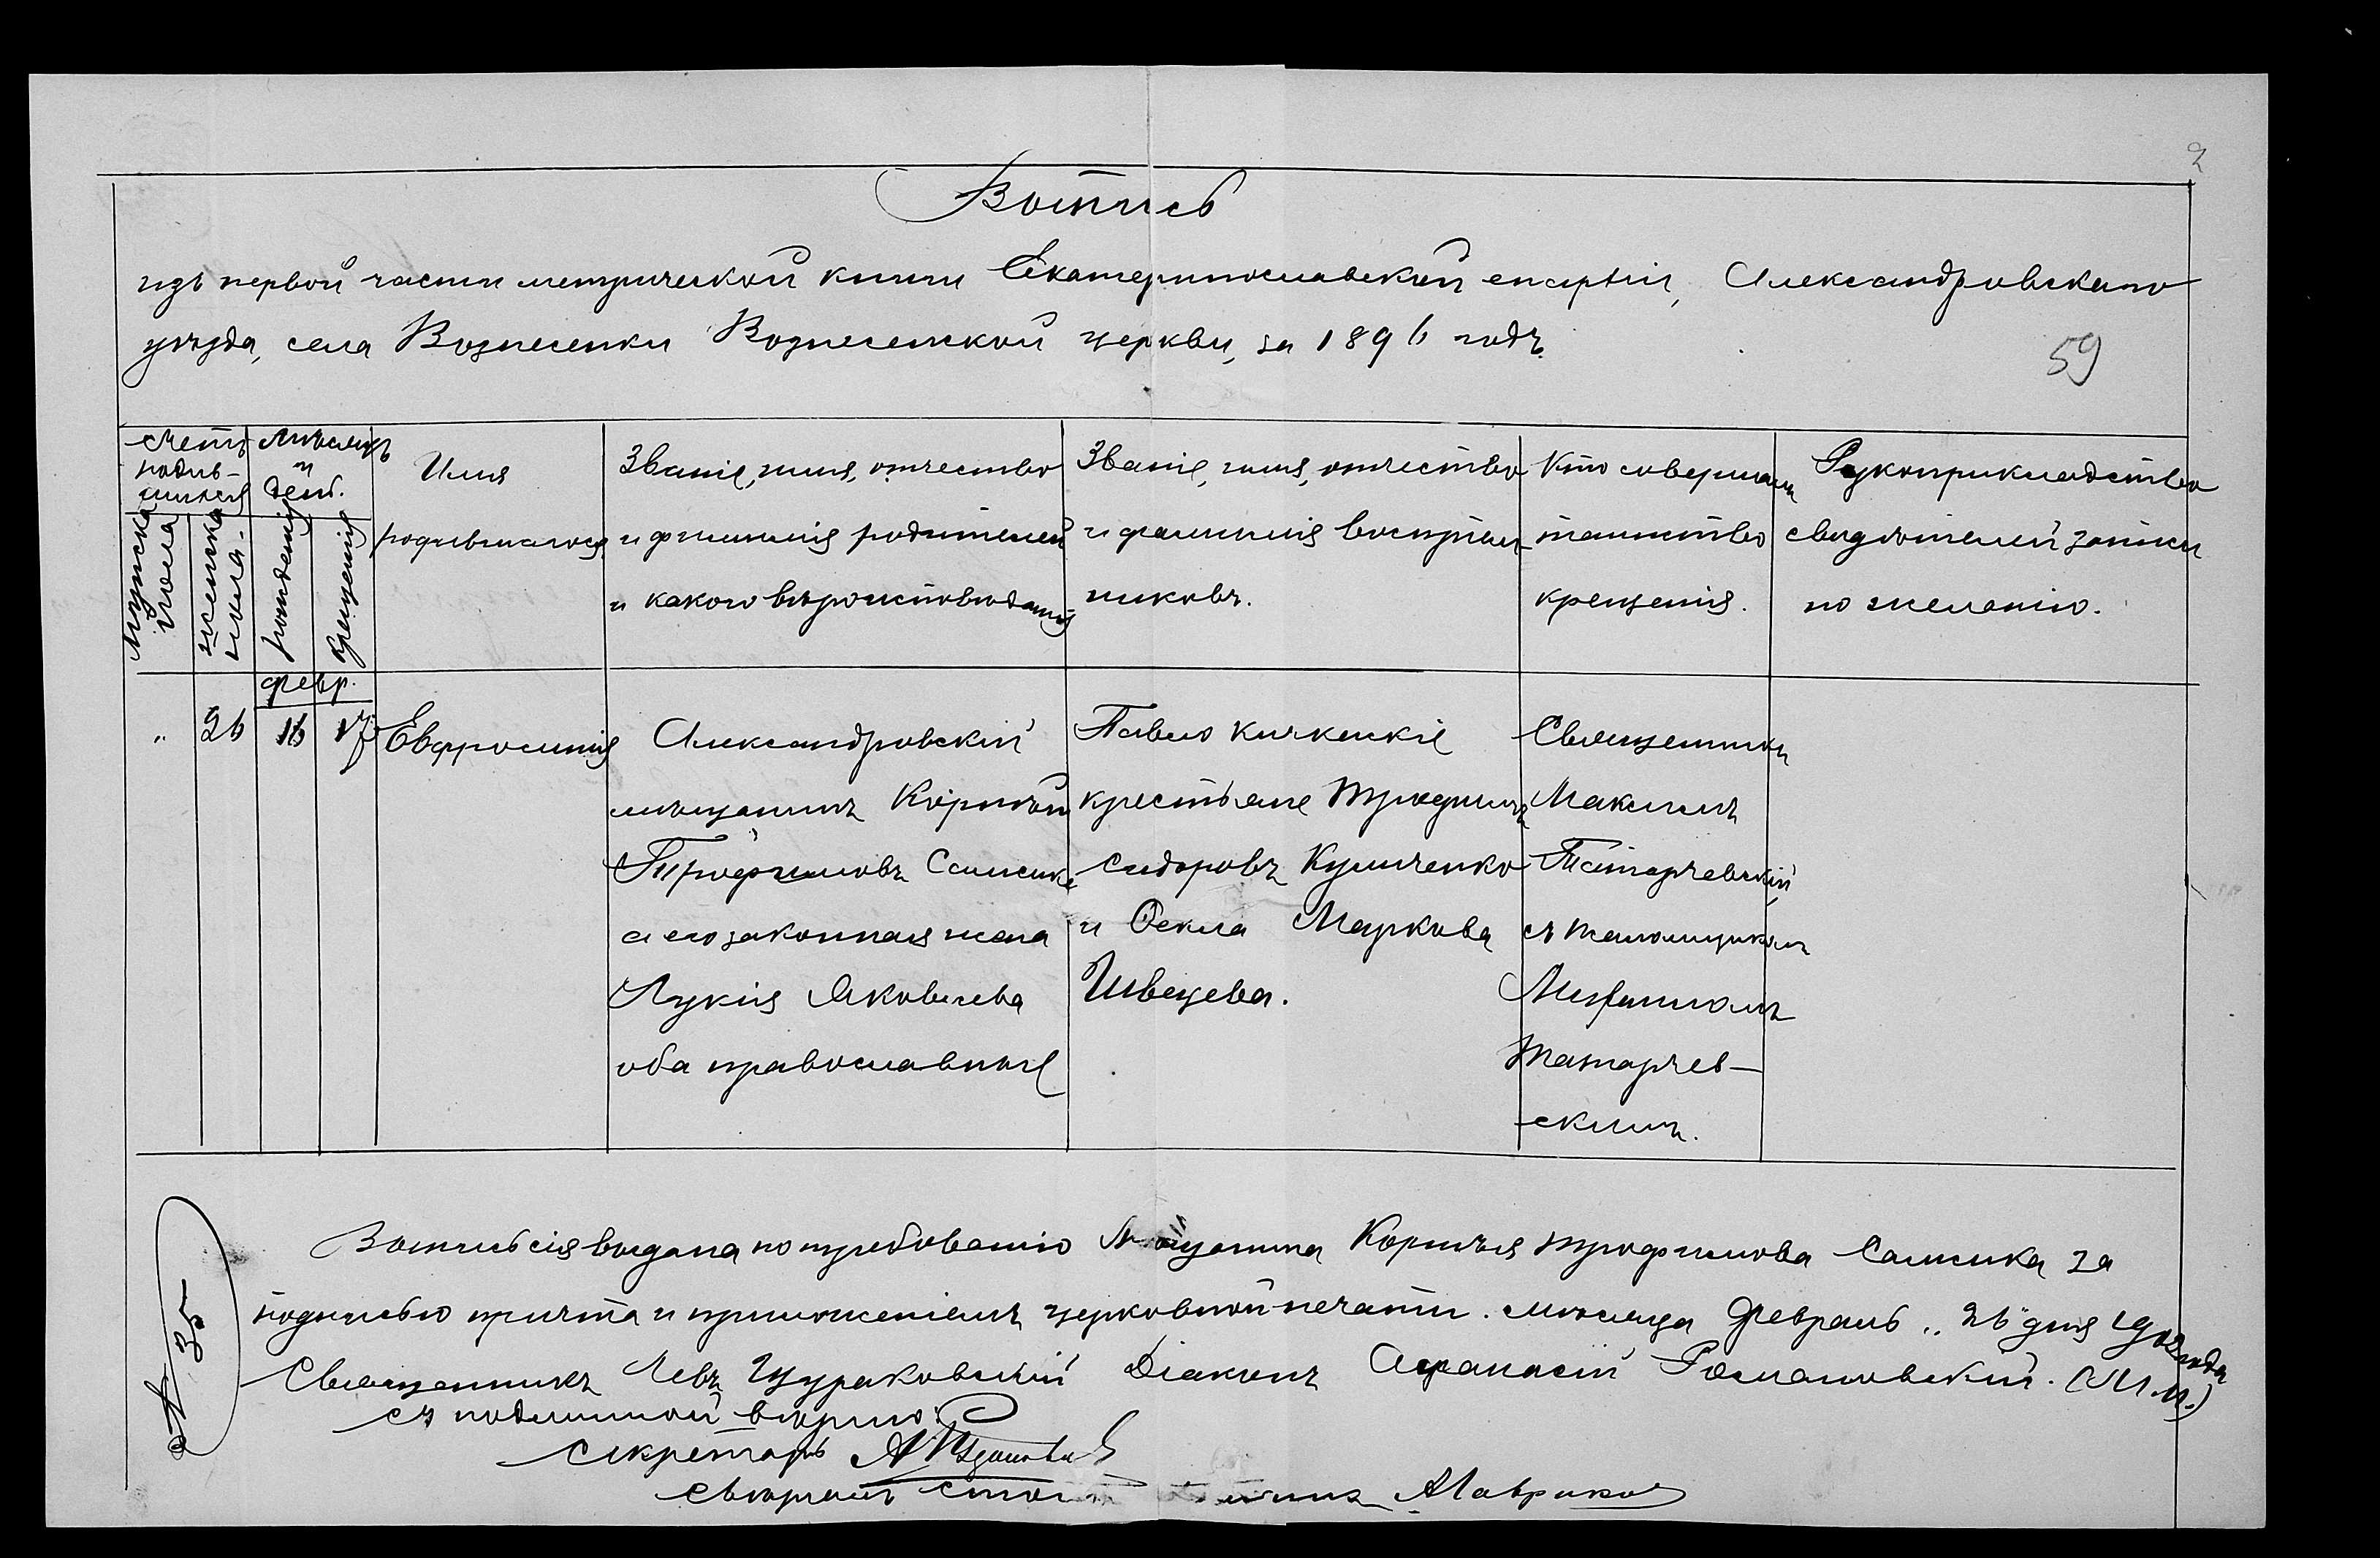 2
Выпись
изъ первой части метрической книги Екатеринославской епархіи, Александровскаго
уѣзда, села Вознесенки Вознесенской церкви, за 1896 годъ.
59
Счетъ родив-шихся
Мужска пола
женска пола.
Мѣсяцъ и день.
рожденія
крещенія
Имя
родившагося
Званіе, имя, отчество
и фамилія родителей
и какого вѣроисповѣданія
Званіе, имя, отчество
и фамилія воспріем-
никовъ.
Кто совершалъ
таинство
крещенія.
Рукоприкладство
свидѣтелей записи
по желанію.
февр.
„ 26 16 17
Евфросинія
Александровскій
мѣщанинъ Корнѣй
Трофимовъ Самсика
и его законная жена
Лукія Яковлева
оба православные
Павло Кичкаскіе
крестьяне Трофимъ
Сидоровъ Куличенко
и Ѳекла Маркова
Швецева.
Священникъ
Максимъ
Татарчевскій
съ псаломщикомъ
Митрофаномъ
Татарчев-
скимъ.
№ 35
Выпись сія выдана по требованію Мѣщанина Корнѣя Трофимова Самсика за
подписью причта и приложеніемъ церковной печати. мѣсяца Февраль „26" дня года
Священникъ Левъ Діаконъ Афанасій Романовскій. (М.П.)
съ подлинной вѣрно:
Секретарь
Свѣрялъ